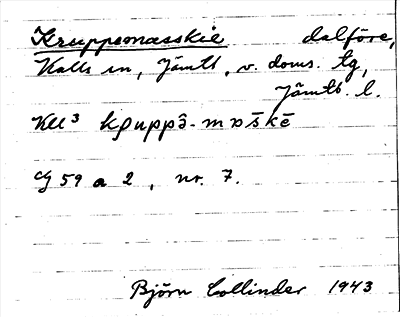 Kruppsmasskie dalföre,
Kalls sn, Jämtl. v. doms. tg,
Jämtl. l.
Kll³ kruppə̂-mɒšкē
cg 59 a 2, nr. 7.
Björn Collinder 1943